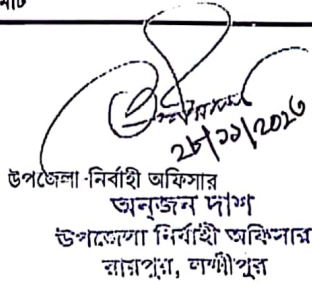 ২৮/১১/২০২৩
উপজেলা নির্বাহী অফিসার
অনজন দাশ
উপজেলা নির্বাহী অফিসার
রায়পুর, লক্ষ্মীপুর